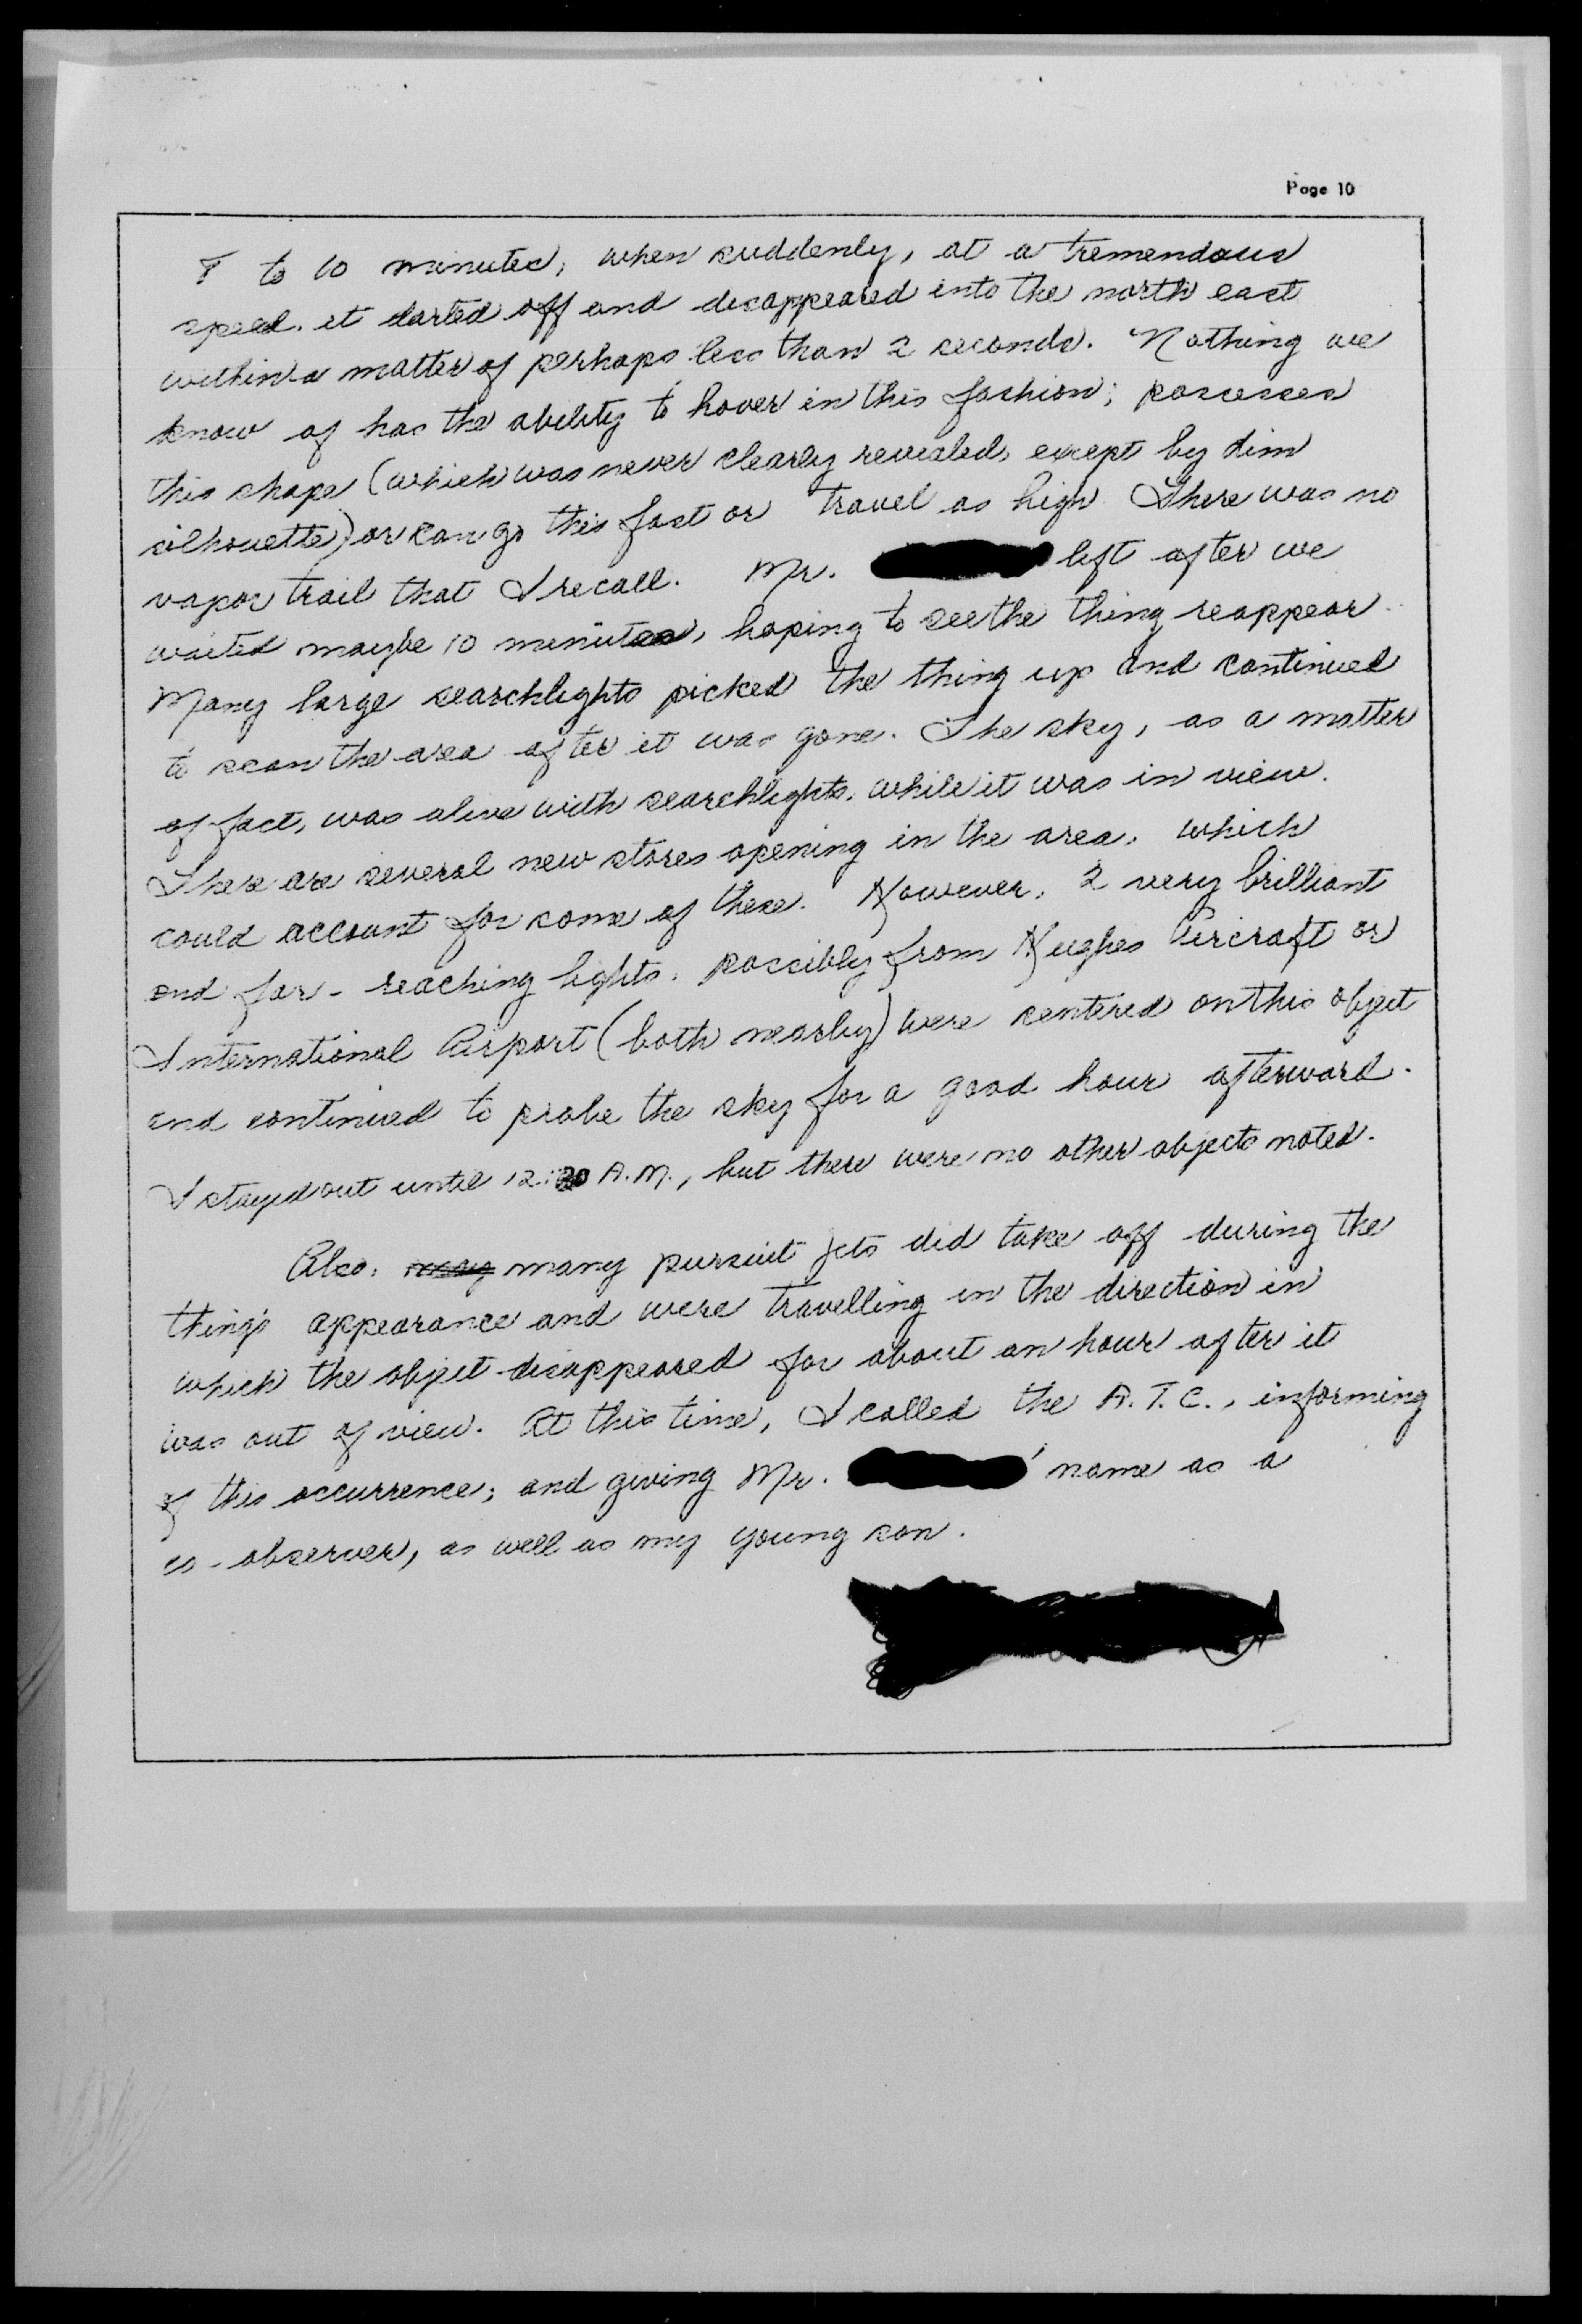 Page 10
8 to 10 minutes, when suddenly, at a tremendous
speed, it darted off and disappeared into the north east
within a matter of perhaps less than 2 seconds. Nothing we
know of has the ability to hover in this fashion; possesses
this shape (which was never clearly revealed, except by dim
silhouette) or can go this fast or travel as high. There was no
vapor trail that I recall. Mr. left after we
waited maybe 10 minutes, hoping to see the thing reappear.
Many large searchlights picked the thing up and continued
to scan the area after it was gone. The sky, as a matter
of fact, was alive with searchlights, while it was in view.
There are several new stores opening in the area, which
could account for some of these. However, 2 very brilliant
and far-reaching lights, possibly from Hughes Aircraft or
International Airport (both nearby) were centered on this object
and continued to probe the sky for a good hour afterward.
I stayed out until 12:30 A.M., but there were no other objects noted.
Also, many many pursuit jets did take off during the
thing's appearance and were travelling in the direction in
which the object disappeared for about an hour after it
was out of view. At this time, I called the A.T.C., informing
of this occurrence; and giving Mr. ' name as a
co-observer, as well as my young son.